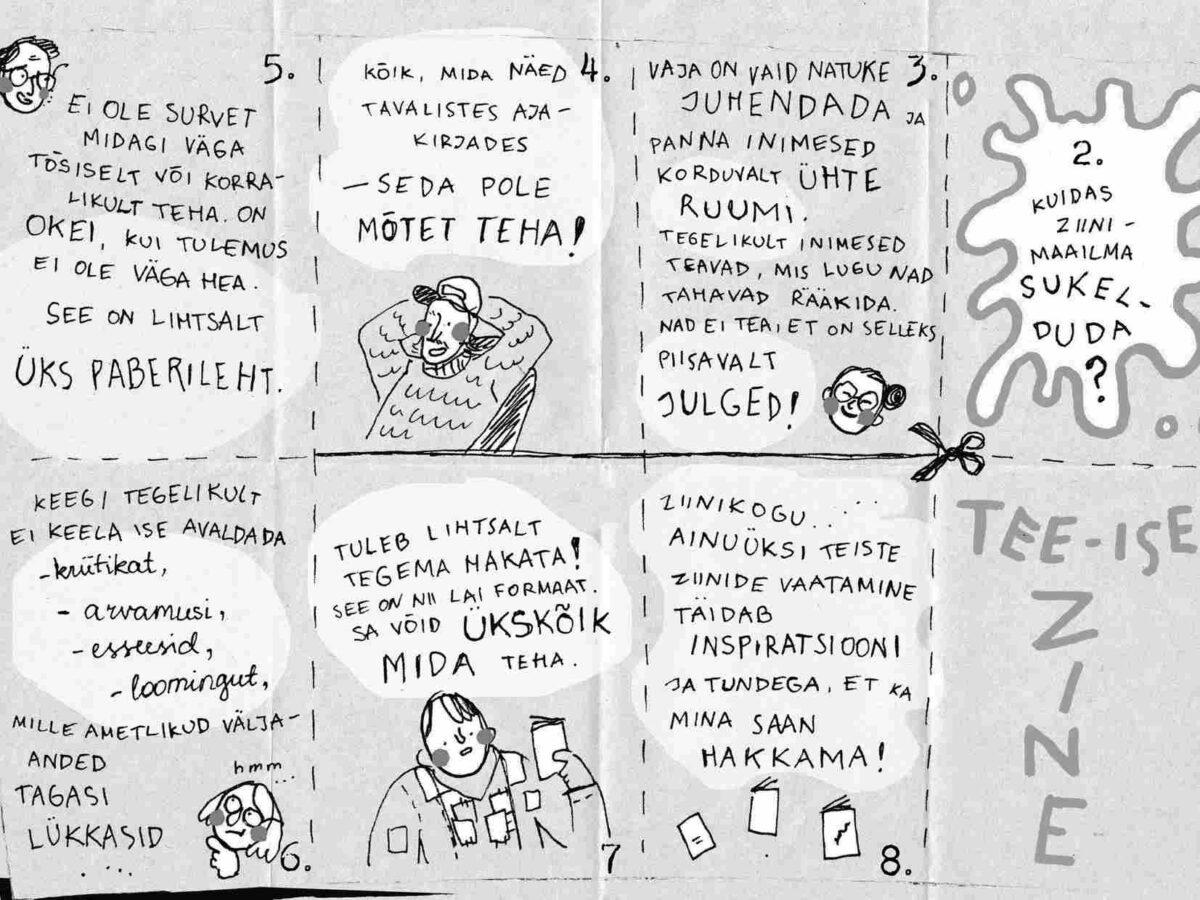 TEE-ISE
ZINE
2.
KUIDAS
ZIINI-
MAAILMA
SUKEL-
DUDA
?
3.
VAJA ON VAID NATUKE
JUHENDADA JA
PANNA INIMESED
KORDUVALT ÜHTE
RUUMI.
TEGELIKULT INIMESED
TEAVAD, MIS LUGU NAD
TAHAVAD RÄÄKIDA.
NAD EI TEA, ET ON SELLEKS
PIISAVALT
JULGED!
4.
KÕIK, MIDA NÄED
TAVALISTES AJA-
KIRJADES
— SEDA POLE
MÕTET TEHA!
5.
EI OLE SURVET
MIDAGI VÄGA
TÕSISELT VÕI KORRA-
LIKULT TEHA. ON
OKEI, KUI TULEMUS
EI OLE VÄGA HEA.
SEE ON LIHTSALT
ÜKS PABERILEHT.
KEEGI TEGELIKULT
EI KEELA ISE AVALDADA
- kriitikat,
- arvamusi,
- esseesid,
- loomingut,
MILLE AMETLIKUD VÄLJA-
ANDED
TAGASI
LÜKKASID
....
hmm...
6.
TULEB LIHTSALT
TEGEMA HAKATA!
SEE ON NII LAI FORMAAT.
SA VÕID ÜKSKÕIK
MIDA TEHA.
7
ZIINIKOGU.....
AINUÜKSI TEISTE
ZIINIDE VAATAMINE
TÄIDAB
INSPIRATSIOONI
JA TUNDEGA, ET KA
MINA SAAN
HAKKAMA!
8.